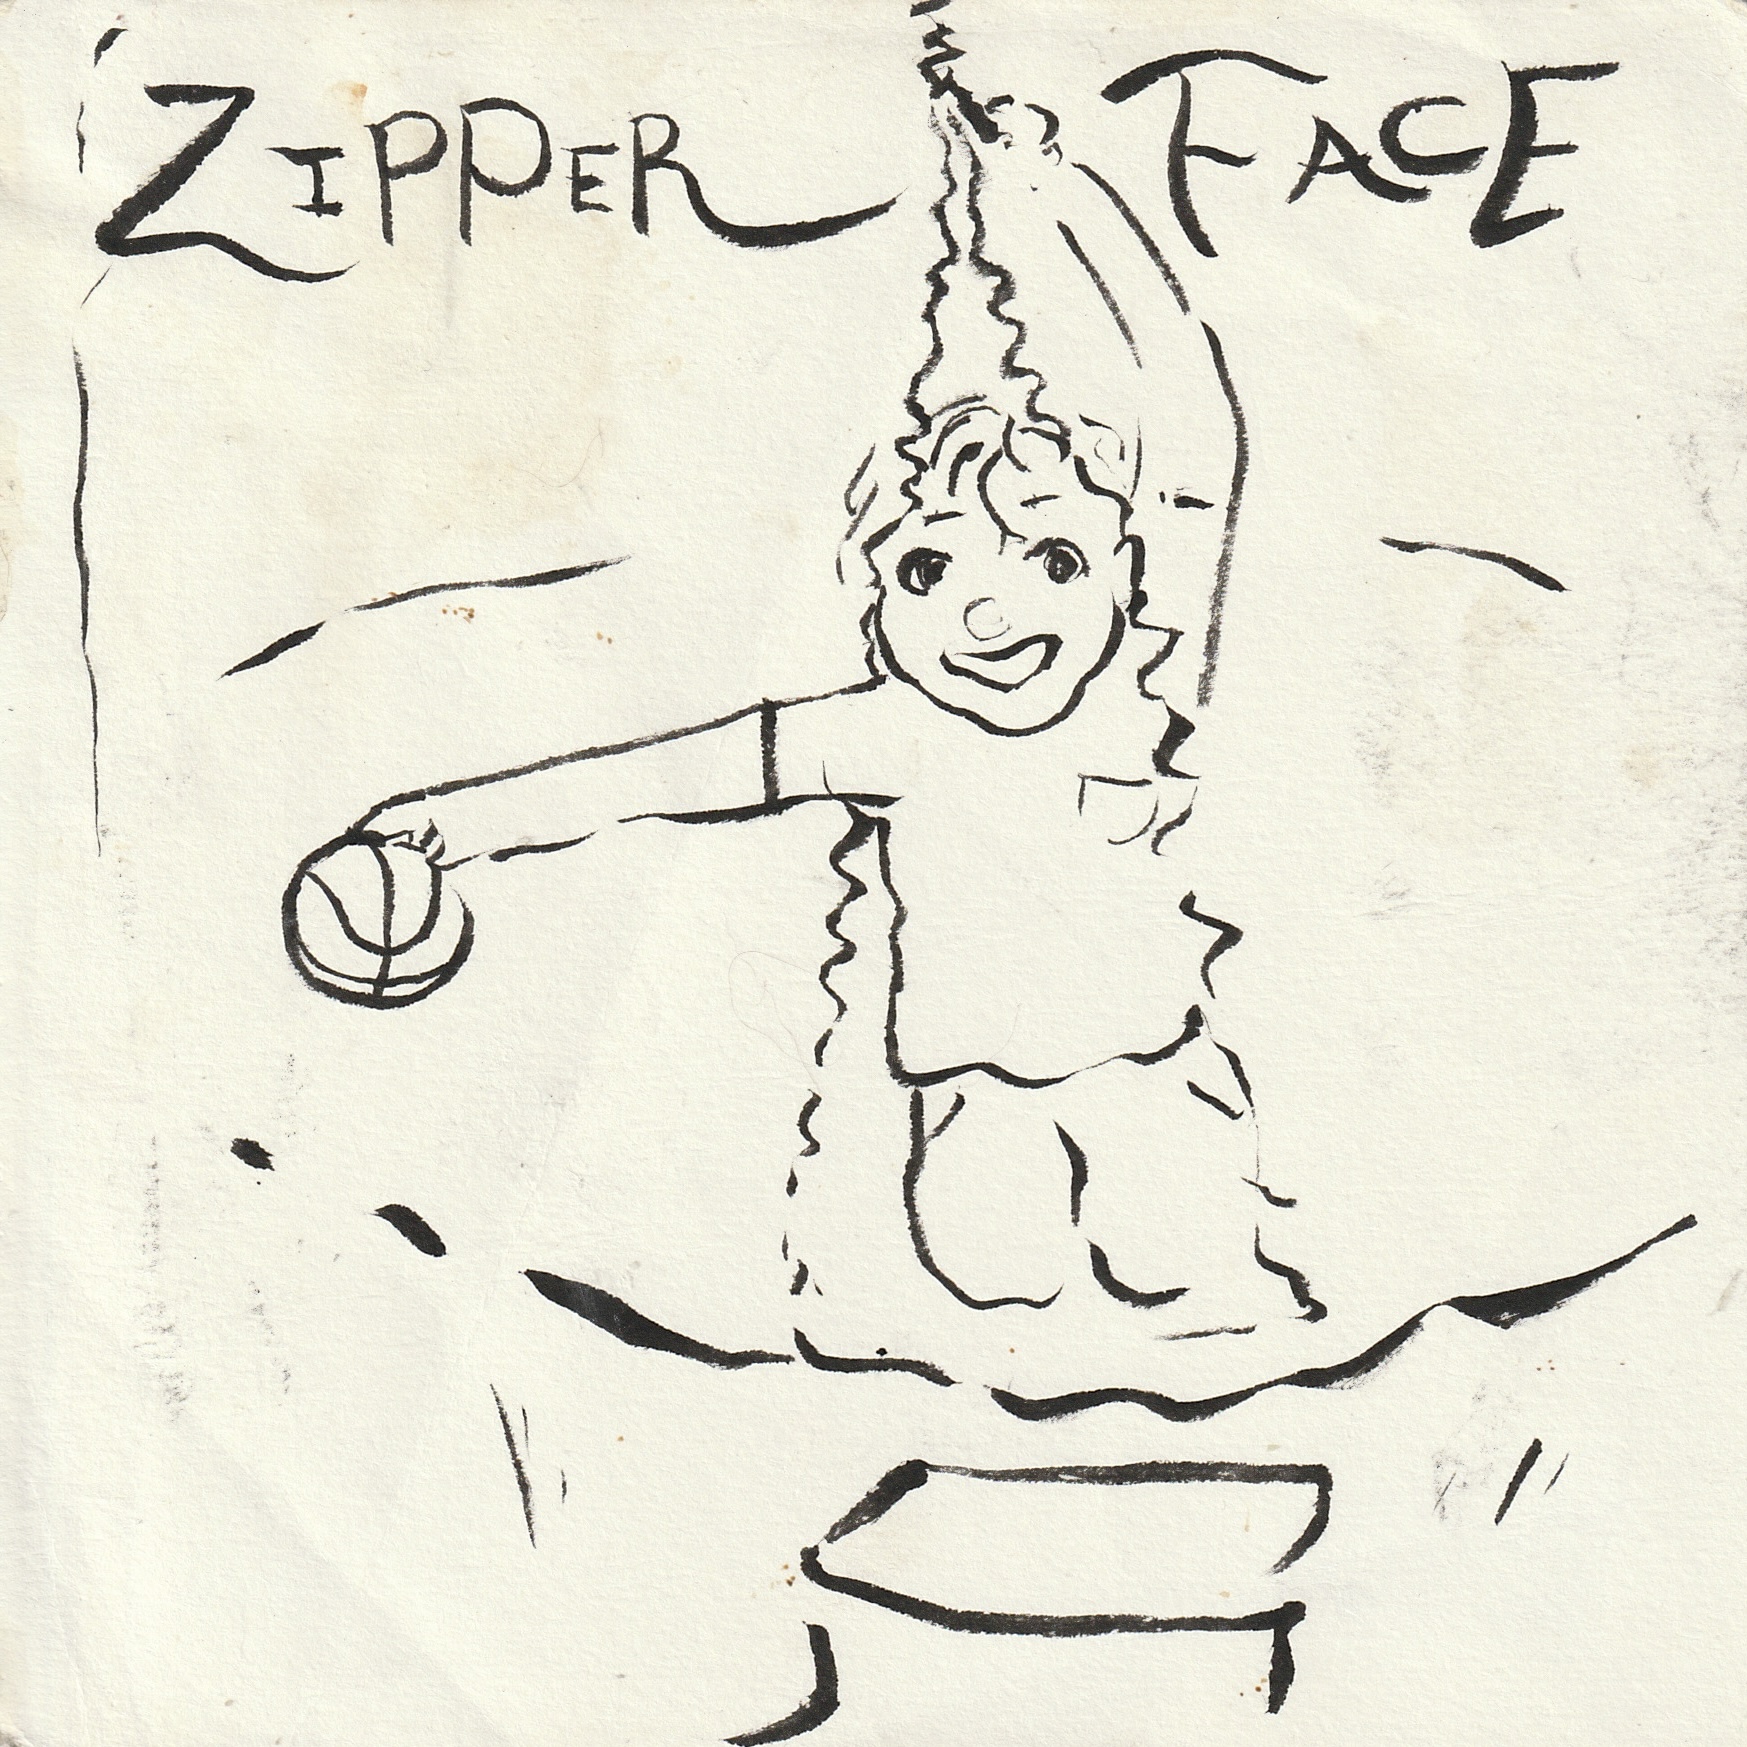 ZIPPER FACE